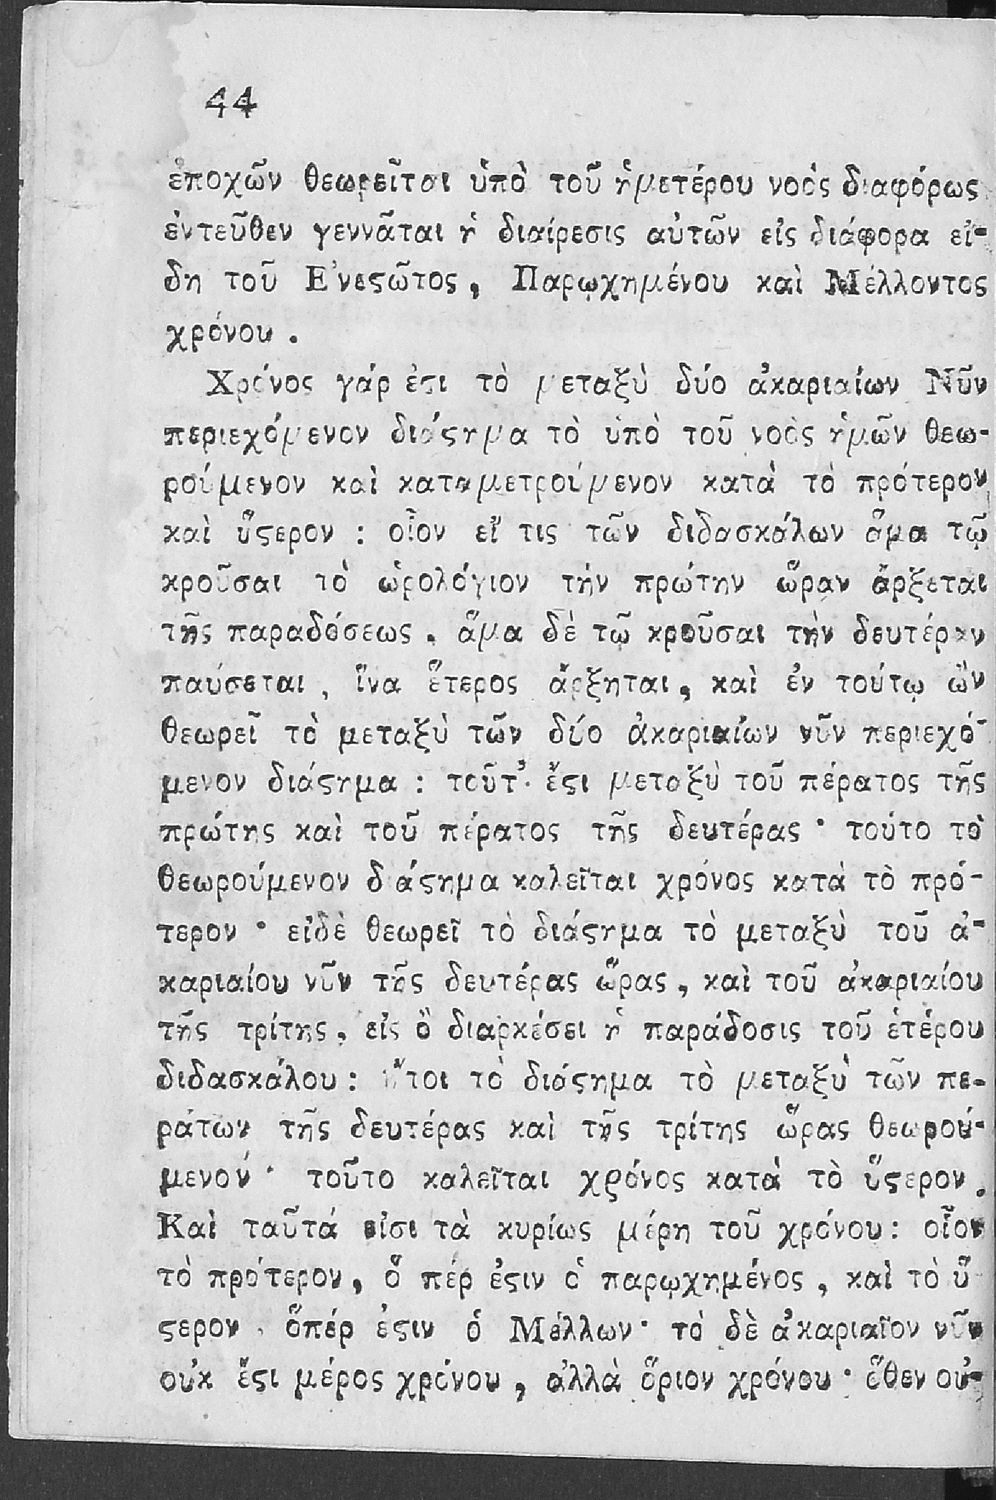 44
ἐποχῶν θεωρεῖται ὑπὸ τοῦ ἡμετέρου νοὸς διαφόρως
ἐντεῦθεν γεννᾶται ἡ διαίρεσις αὐτῶν εἰς διάφορα εἴ-
δη τοῦ Ἐνεϛῶτος, Παρῳχημένου καὶ Μέλλοντος
χρόνου.
Χρόνος γάρ ἐϛι τὸ μεταξὺ δύο ἀκαριαίων Νῦν
περιεχόμενον διάϛημα τὸ ὑπὸ τοῦ νοὸς ἡμῶν θεω-
ρούμενον καὶ καταμετρούμενον κατὰ τὸ πρότερον
καὶ ὕϛερον : οἷον εἴ τις τῶν διδασκάλων ἅμα τῷ
κροῦσαι τὸ ὡρολόγιον τὴν πρώτην ὥραν ἄρξεται
τῆς παραδόσεως, ἅμα δὲ τῷ κροῦσαι τὴν δευτέραν
παύσεται, ἵνα ἕτερος ἄρξηται, καὶ ἐν τούτῳ ὢν
θεωρεῖ τὸ μεταξὺ τῶν δύο ἀκαριαίων νῦν περιεχό-
μενον διάϛημα : τοῦτ' ἔϛι μεταξὺ τοῦ πέρατος τῆς
πρώτης καὶ τοῦ πέρατος τῆς δευτέρας · τοῦτο τὸ
θεωρούμενον διάϛημα καλεῖται χρόνος κατὰ τὸ πρό-
τερον · εἰδὲ θεωρεῖ τὸ διάϛημα τὸ μεταξὺ τοῦ ἀ-
καριαίου νῦν τῆς δευτέρας ὥρας, καὶ τοῦ ἀκαριαίου
τῆς τρίτης, εἰς ὃ διαρκέσει ἡ παράδοσις τοῦ ἑτέρου
διδασκάλου : ἤτοι τὸ διάϛημα τὸ μεταξὺ τῶν πε-
ράτων τῆς δευτέρας καὶ τῆς τρίτης ὥρας θεωρού-
μενον · τοῦτο καλεῖται χρόνος κατὰ τὸ ὕϛερον.
Καὶ ταῦτά εἰσι τὰ κυρίως μέρη τοῦ χρόνου : οἷον
τὸ πρότερον, ὅ πέρ ἐϛιν ὁ παρῳχημένος, καὶ τὸ ὕ-
ϛερον, ὅπέρ ἐϛιν ὁ Μέλλων · τὸ δὲ ἀκαριαῖον νῦν
οὐκ ἔϛι μέρος χρόνου, ἀλλὰ ὅριον χρόνου · ὅθεν οὐ-